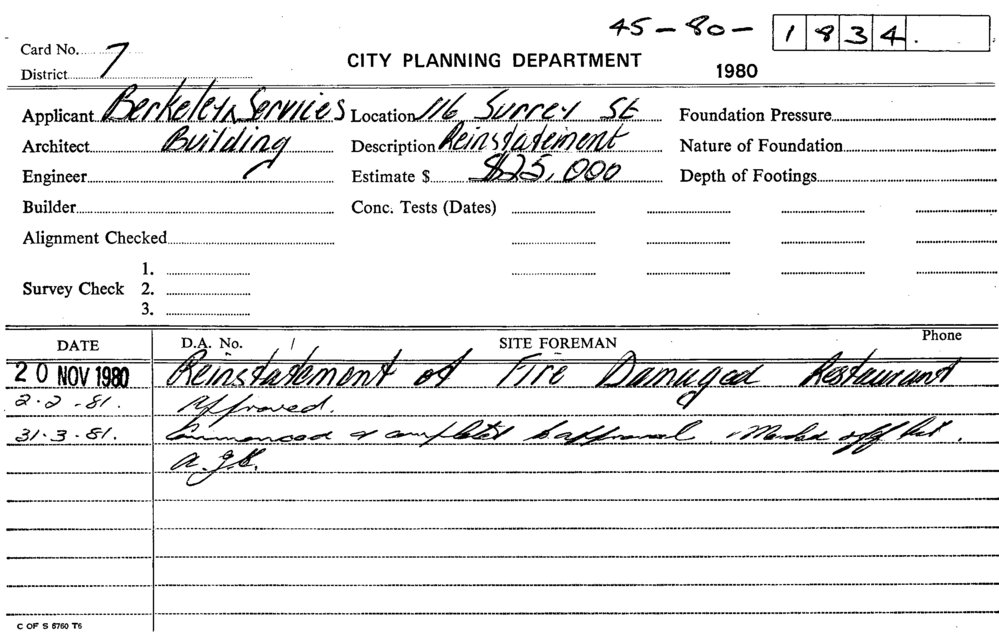 45-80-1834.
Card No. 7
District
CITY PLANNING DEPARTMENT
1980
Applicant Berkeley Services Location 116 Surrey St Foundation Pressure
Architect Building Description Reinstatement Nature of Foundation
Engineer Estimate $ $25,000 Depth of Footings
Builder Conc. Tests (Dates)
Alignment Checked
1.
Survey Check 2.
3.
DATE D.A. No. / SITE FOREMAN Phone
20 NOV 1980 Reinstatement of Fire Damaged Restaurant
2-2-81. Approved.
31.3.81. Commenced & completed to approval. Marked off list.
C OF S 6760 T6